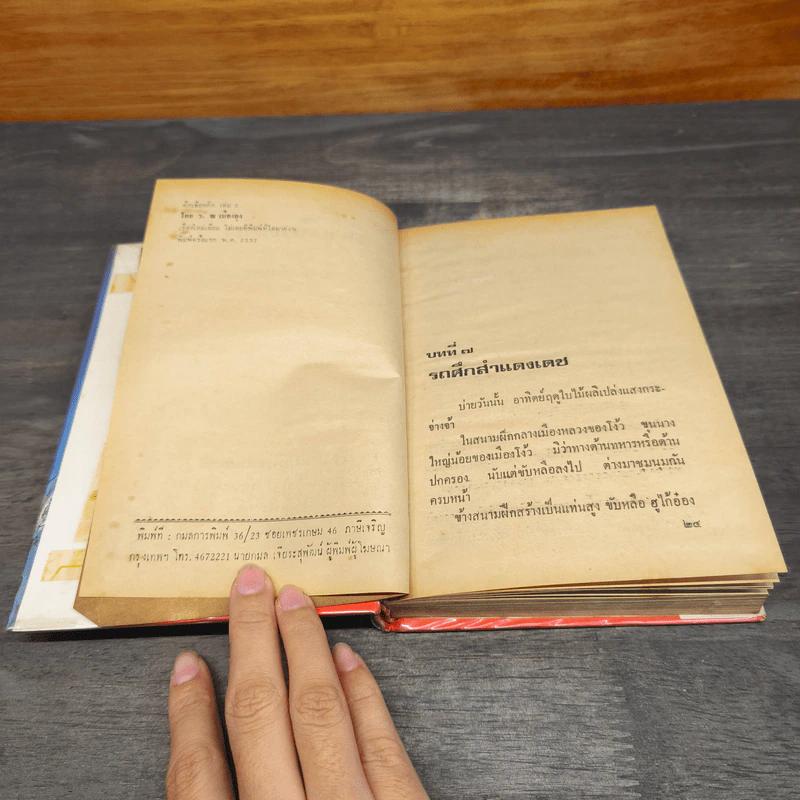 โดย ว. ณ เมืองลุง
พิมพ์ครั้งแรก พ.ศ.
พิมพ์ที่ : กมลการพิมพ์ 36/23 ซอยเพชรเกษม 46 ภาษีเจริญ
กรุงเทพฯ โทร. 4672221 นายกมล เจียระสุพัฒน์ ผู้พิมพ์ผู้โฆษณา
บทที่ ๗
รถศึกสำแดงเดช
บ่ายวันนั้น อาทิตย์ฤดูใบไม้ผลิเปล่งแสงกระ-
จ่างจ้า
ในสนามฝึกกลางเมืองหลวงของโง้ว ขุนนาง
ใหญ่น้อยของเมืองโง้ว มิว่าทางด้านทหารหรือด้าน
ปกครอง นับแต่ขับหลือลงไป ต่างมาชุมนุมกัน
ครบหน้า
ข้างสนามฝึกสร้างเป็นแท่นสูง ขับหลือ ฮูไก้อ๋อง
๒๔